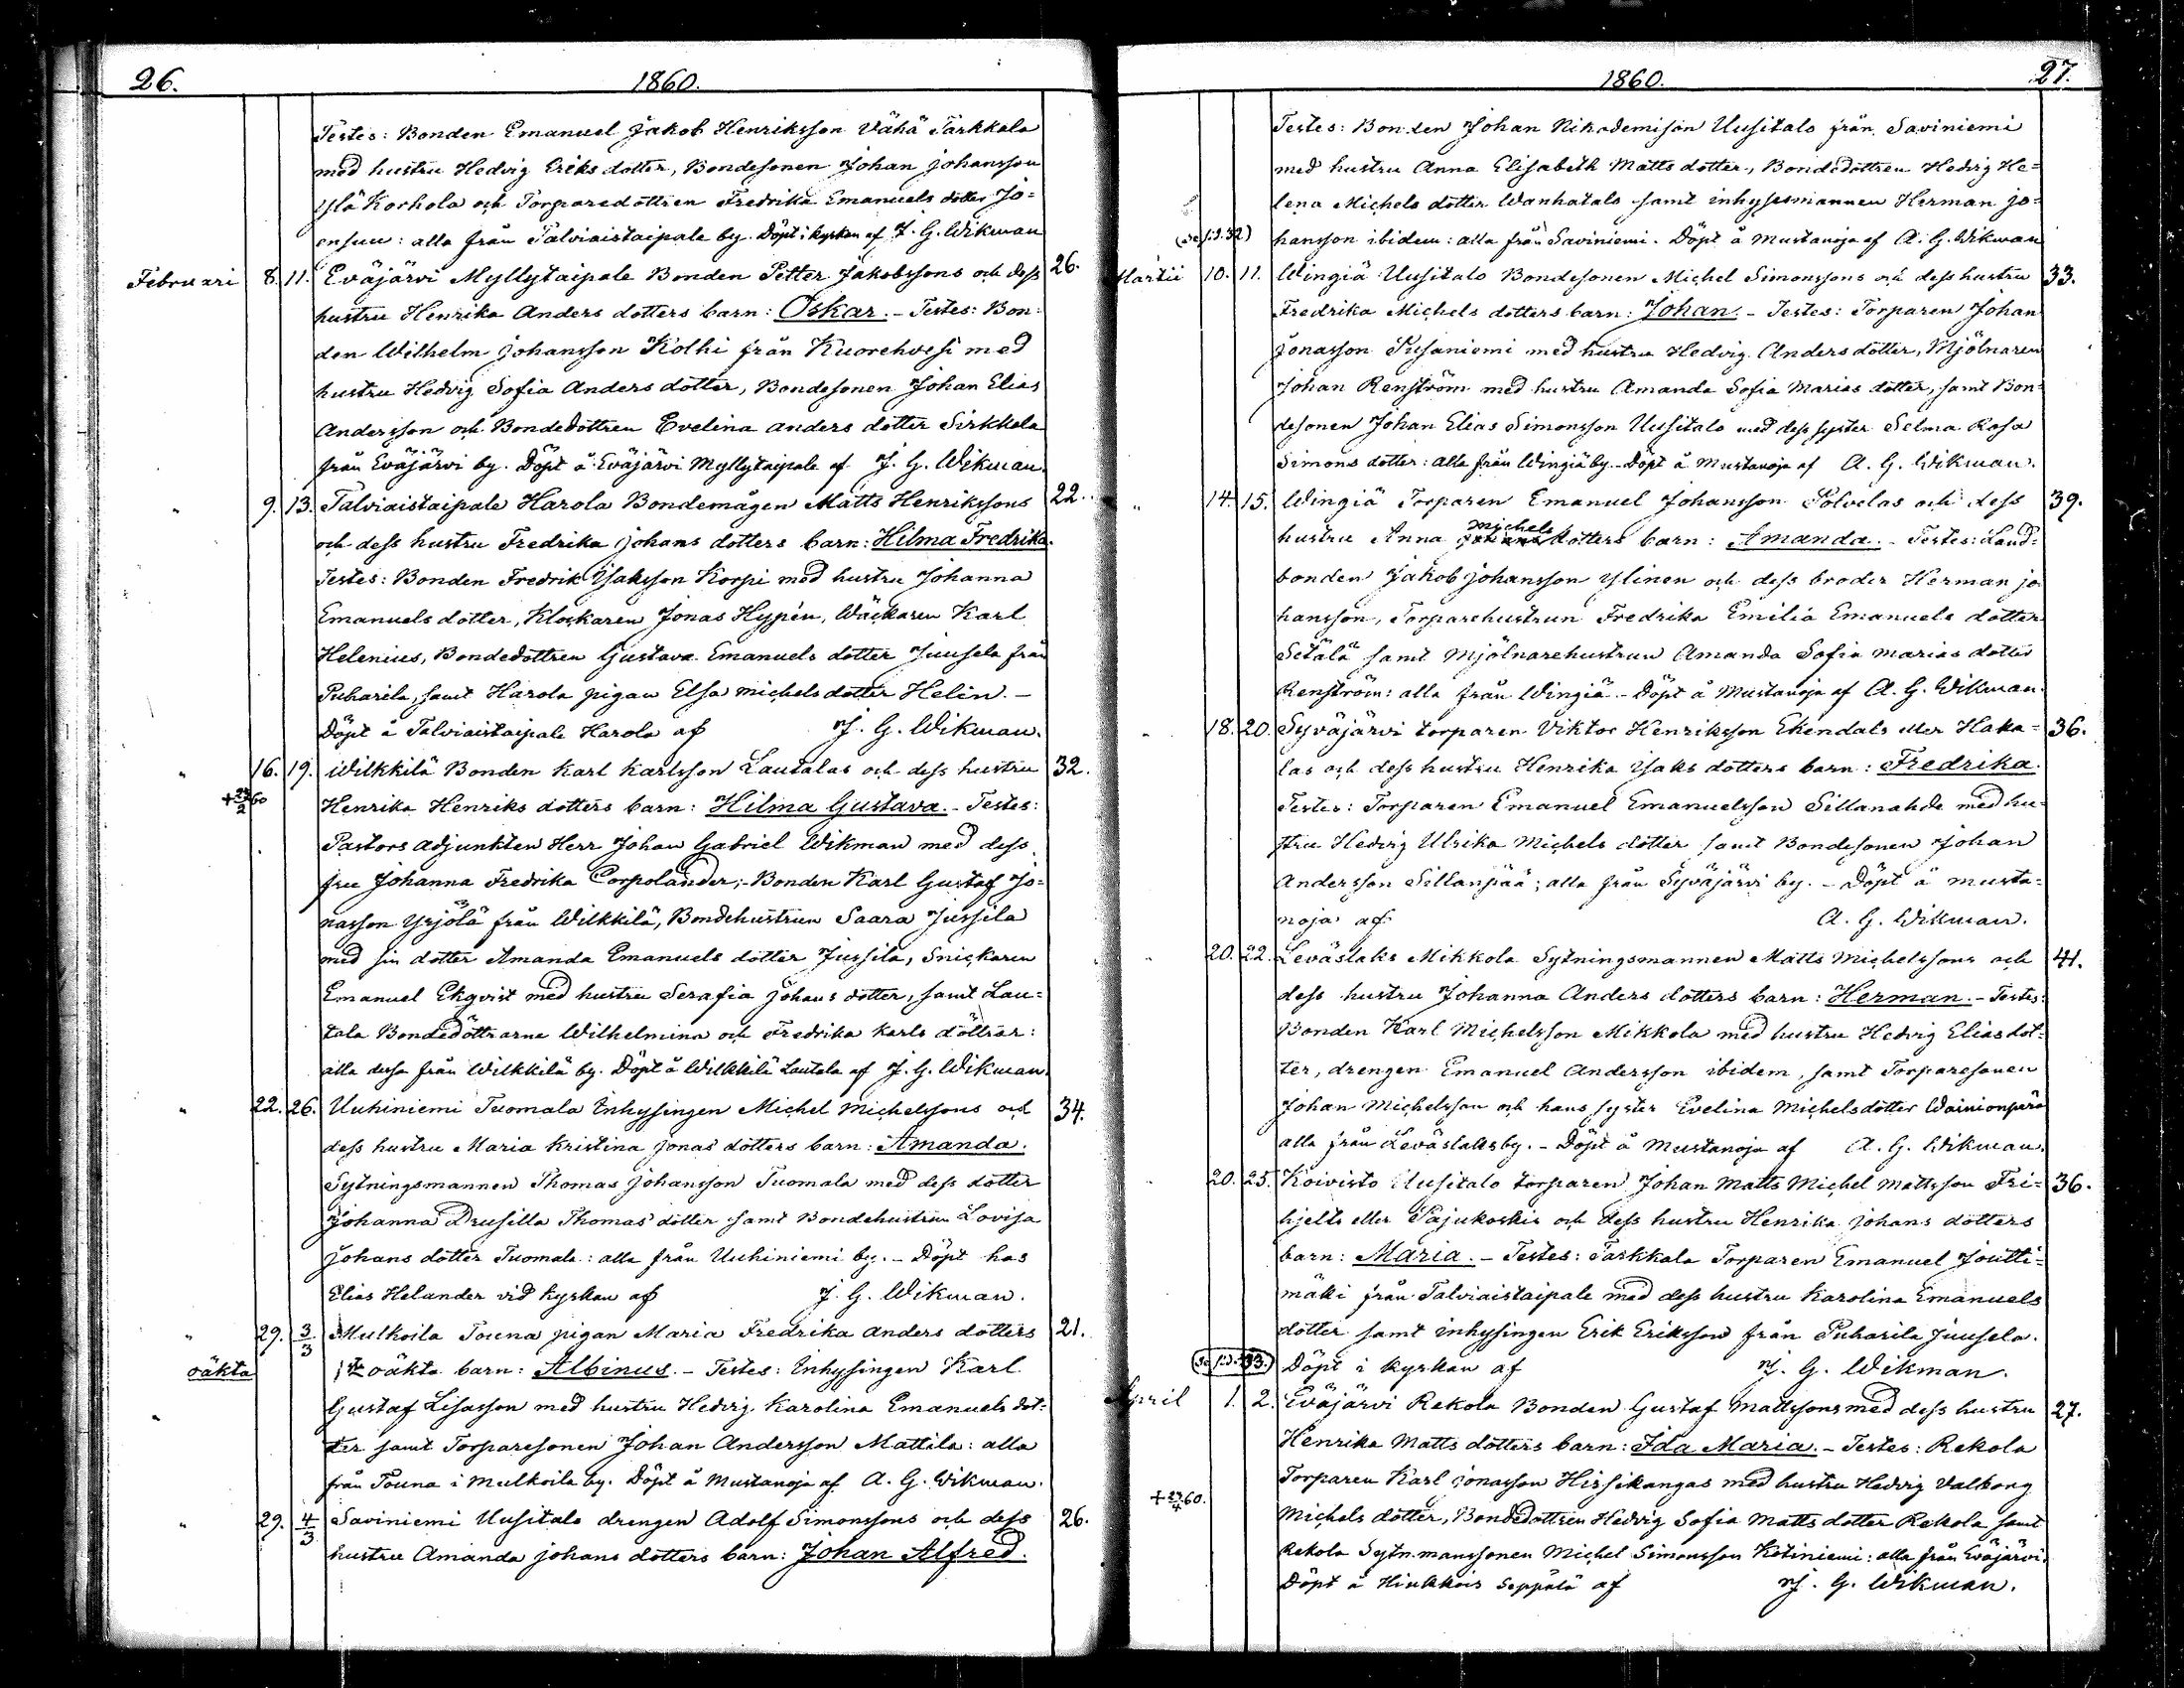 26.
1860.
Testes: Bonden Emanuel Jakob Henriksson Vähä Tarkkala
med hustru Hedvig Eriks dotter, Bondesonen Johan Johansson
Ylä Korhola och Torparedottren Fredrika Emanuels dotter Jo=
ensuu: alla från Talviaistaipale by. Döpt i kyrkan af J. G. Wikman
Februari 8. 11. Eväjärvi Myllytaipale Bonden Petter Jakobssons och dess 26.
hustru Henrika Anders dotters barn: Oskar. - Testes: Bon=
den Wilhelm Johansson Kolhi från Kuorehvesi med
hustru Hedvig Sofia Anders dotter, Bondesonen Johan Elias
Andersson och Bondedottren Evelina Anders dotter Sirkkala
från Eväjärvi by. Döpt å Eväjärvi Myllytaipale af J. G. Wikman.
" 9. 13. Talviaistaipale Harola Bondemågen Matts Henrikssons 22.
och dess hustru Fredrika Johans dotters barn: Hilma Fredrika.
Testes: Bonden Fredrik Isaksson Korpi med hustru Johanna
Emanuels dotter, Klockaren Jonas Hypén, Wäckaren Karl
Helenius, Bondedottren Gustava Emanuels dotter Juusela från
Puharila, samt Harola pigan Elsa Michels dotter Helin. -
Döpt å Talviaistaipale Harola af J. G. Wikman.
" 16. 19. Wilkkilä Bonden Karl Karlsson Lautalas och dess hustru 32.
+ 23/2 60 Henrika Henriks dotters barn: Hilma Gustava. - Testes:
Pastors adjunkten Herr Johan Gabriel Wikman med dess
fru Johanna Fredrika Corpolander; - Bonden Karl Gustaf Jo=
nasson Yrjölä från Wilkkilä, Bondehustrun Saara Jussila
med sin dotter Amanda Emanuels dotter Jussila, Snickaren
Emanuel Ekqvist med hustru Serafia Johans dotter, samt Lau=
tala Bondedöttrarne Wilhelmina och Fredrika Karls döttrar:
alla dessa från Wilkkilä by. Döpt å Wilkkilä Lautala af J. G. Wikman.
" 22. 26. Uuhiniemi Tuomala Inhysingen Michel Michelssons och 34.
dess hustru Maria Kristina Jonas dotters barn: Amanda.
Sytningsmannen Thomas Johansson Tuomala med dess dotter
Johanna Drusilla Thomas dotter samt Bondehustrun Lovisa
Johans dotter Tuomala: alla från Uuhiniemi by. - Döpt hos
Elias Helander vid kyrkan af J. G. Wikman.
" 29. 3/3 Mulkoila Touna pigan Maria Fredrika Anders dotters 21.
oäkta 1sta oäkta barn: Albinus. - Testes: Inhysingen Karl
Gustaf Lisasson med hustru Hedvig Karolina Emanuels dot=
ter samt Torparesonen Johan Andersson Mattila: alla
från Touna i Mulkoila by. Döpt å Mustanoja af A. G. Wikman.
" 29. 4/3 Saviniemi Uusitalo drengen Adolf Simonssons och dess 26.
hustru Amanda Johans dotters barn: Johan Alfred.
1860.
27.
Testes: Bonden Johan Nikodemison Uusitalo från Saviniemi
med hustru Anna Elisabeth Matts dotter, Bondedottren Hedvig He=
lena Michels dotter Wanhatalo samt inhysesmannen Herman Jo=
(se sid. 32) hansson ibidem: alla från Saviniemi. Döpt å Mustanoja af A. G. Wikman
Martii 10. 11. Wingiä Uusitalo Bondesonen Michel Simonssons och dess hustru 33.
Fredrika Michels dotters barn: Johan. - Testes: Torparen Johan
Jonasson Susaniemi med hustru Hedvig Anders dotter, Mjölnaren
Johan Renström med hustru Amanda Sofia Marias dotter, samt Bon=
desonen Johan Elias Simonsson Uusitalo med dess syster Selma Rosa
Simons dotter: alla från Wingiä by. - Döpt å Mustanoja af A. G. Wikman.
" 14. 15. Wingiä Torparen Emanuel Johansson Polvelas och dess 39.
hustru Anna Michels dotters barn: Amanda. - Testes: Land=
bonden Jakob Johansson Ylinen och dess broder Herman Jo=
hansson, Torparehustrun Fredrika Emilia Emanuels dotter
Setälä samt Mjölnarehustrun Amanda Sofia Marias dotter
Renström: alla från Wingiä. - Döpt å Mustanoja af A. G. Wikman.
" 18. 20. Syväjärvi torparen Viktor Henriksson Ekendals eller Haka= 36.
las och dess hustru Henrika Isaks dotters barn: Fredrika.
Testes: Torparen Emanuel Emanuelsson Sillanahde med hu=
stru Hedvig Ulrika Michels dotter samt Bondesonen Johan
Andersson Sillanpää; alla från Syväjärvi by. - Döpt å Musta=
noja af A. G. Wikman.
" 20. 22. Leväslaks Mikkola Sytningsmannen Matts Michelssons och 41.
dess hustru Johanna Anders dotters barn: Herman. - Testes:
Bonden Karl Michelsson Mikkola med hustru Hedvig Elias dot=
ter, drengen Emanuel Andersson ibidem, samt Torparesonen
Johan Michelsson och hans syster Evelina Michelsdotter Wainionperä
alla från Leväslaks by. - Döpt å Mustanoja af A. G. Wikman.
" 20. 25. Koivisto Uusitalo torparen Johan Matts Michel Mattsson Fri= 36.
hjelts eller Pajukoskis och dess hustru Henrika Johans dotters
barn: Maria. - Testes: Tarkkala Torparen Emanuel Joutti=
mäki från Talviaistaipale med dess hustru Karolina Emanuels
dotter samt inhysingen Erik Eriksson från Puharila Juusela.
(se sid. 33.) Döpt i kyrkan af J. G. Wikman.
April 1. 2. Eväjärvi Rekola Bonden Gustaf Mattssons med dess hustru 27.
Henrika Matts dotters barn: Ida Maria. - Testes: Rekola
Torparen Karl Jonasson Hirsikangas med hustru Hedvig Valborg
+ 23/4 60. Michels dotter, Bondedottren Hedvig Sofia Matts dotter Rekola samt
Rekola Sytn.manssonen Michel Simonsson Kotiniemi: alla från Eväjärvi.
Döpt å Hinkkois Seppälä af J. G. Wikman.